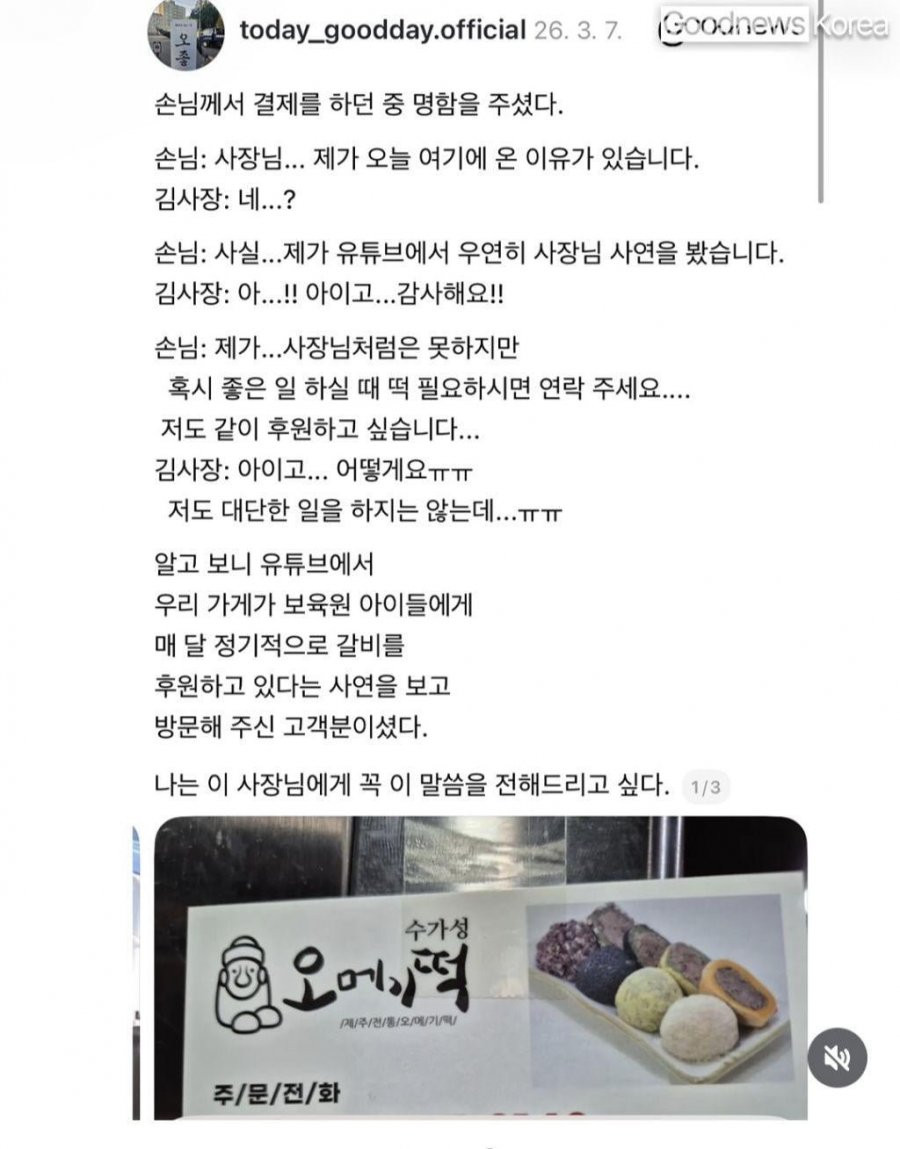 today_goodday.official 26. 3. 7.
Goodnews Korea
손님께서 결제를 하던 중 명함을 주셨다.
손님: 사장님... 제가 오늘 여기에 온 이유가 있습니다.
김사장: 네...?
손님: 사실...제가 유튜브에서 우연히 사장님 사연을 봤습니다.
김사장: 아...!! 아이고...감사해요!!
손님: 제가...사장님처럼은 못하지만
혹시 좋은 일 하실 때 떡 필요하시면 연락 주세요....
저도 같이 후원하고 싶습니다...
김사장: 아이고... 어떻게요ㅠㅠ
저도 대단한 일을 하지는 않는데...ㅠㅠ
알고 보니 유튜브에서
우리 가게가 보육원 아이들에게
매 달 정기적으로 갈비를
후원하고 있다는 사연을 보고
방문해 주신 고객분이셨다.
나는 이 사장님에게 꼭 이 말씀을 전해드리고 싶다.
1/3
수가성
오메기떡
/제/주/전/통/오/메/기/떡/
주/문/전/화